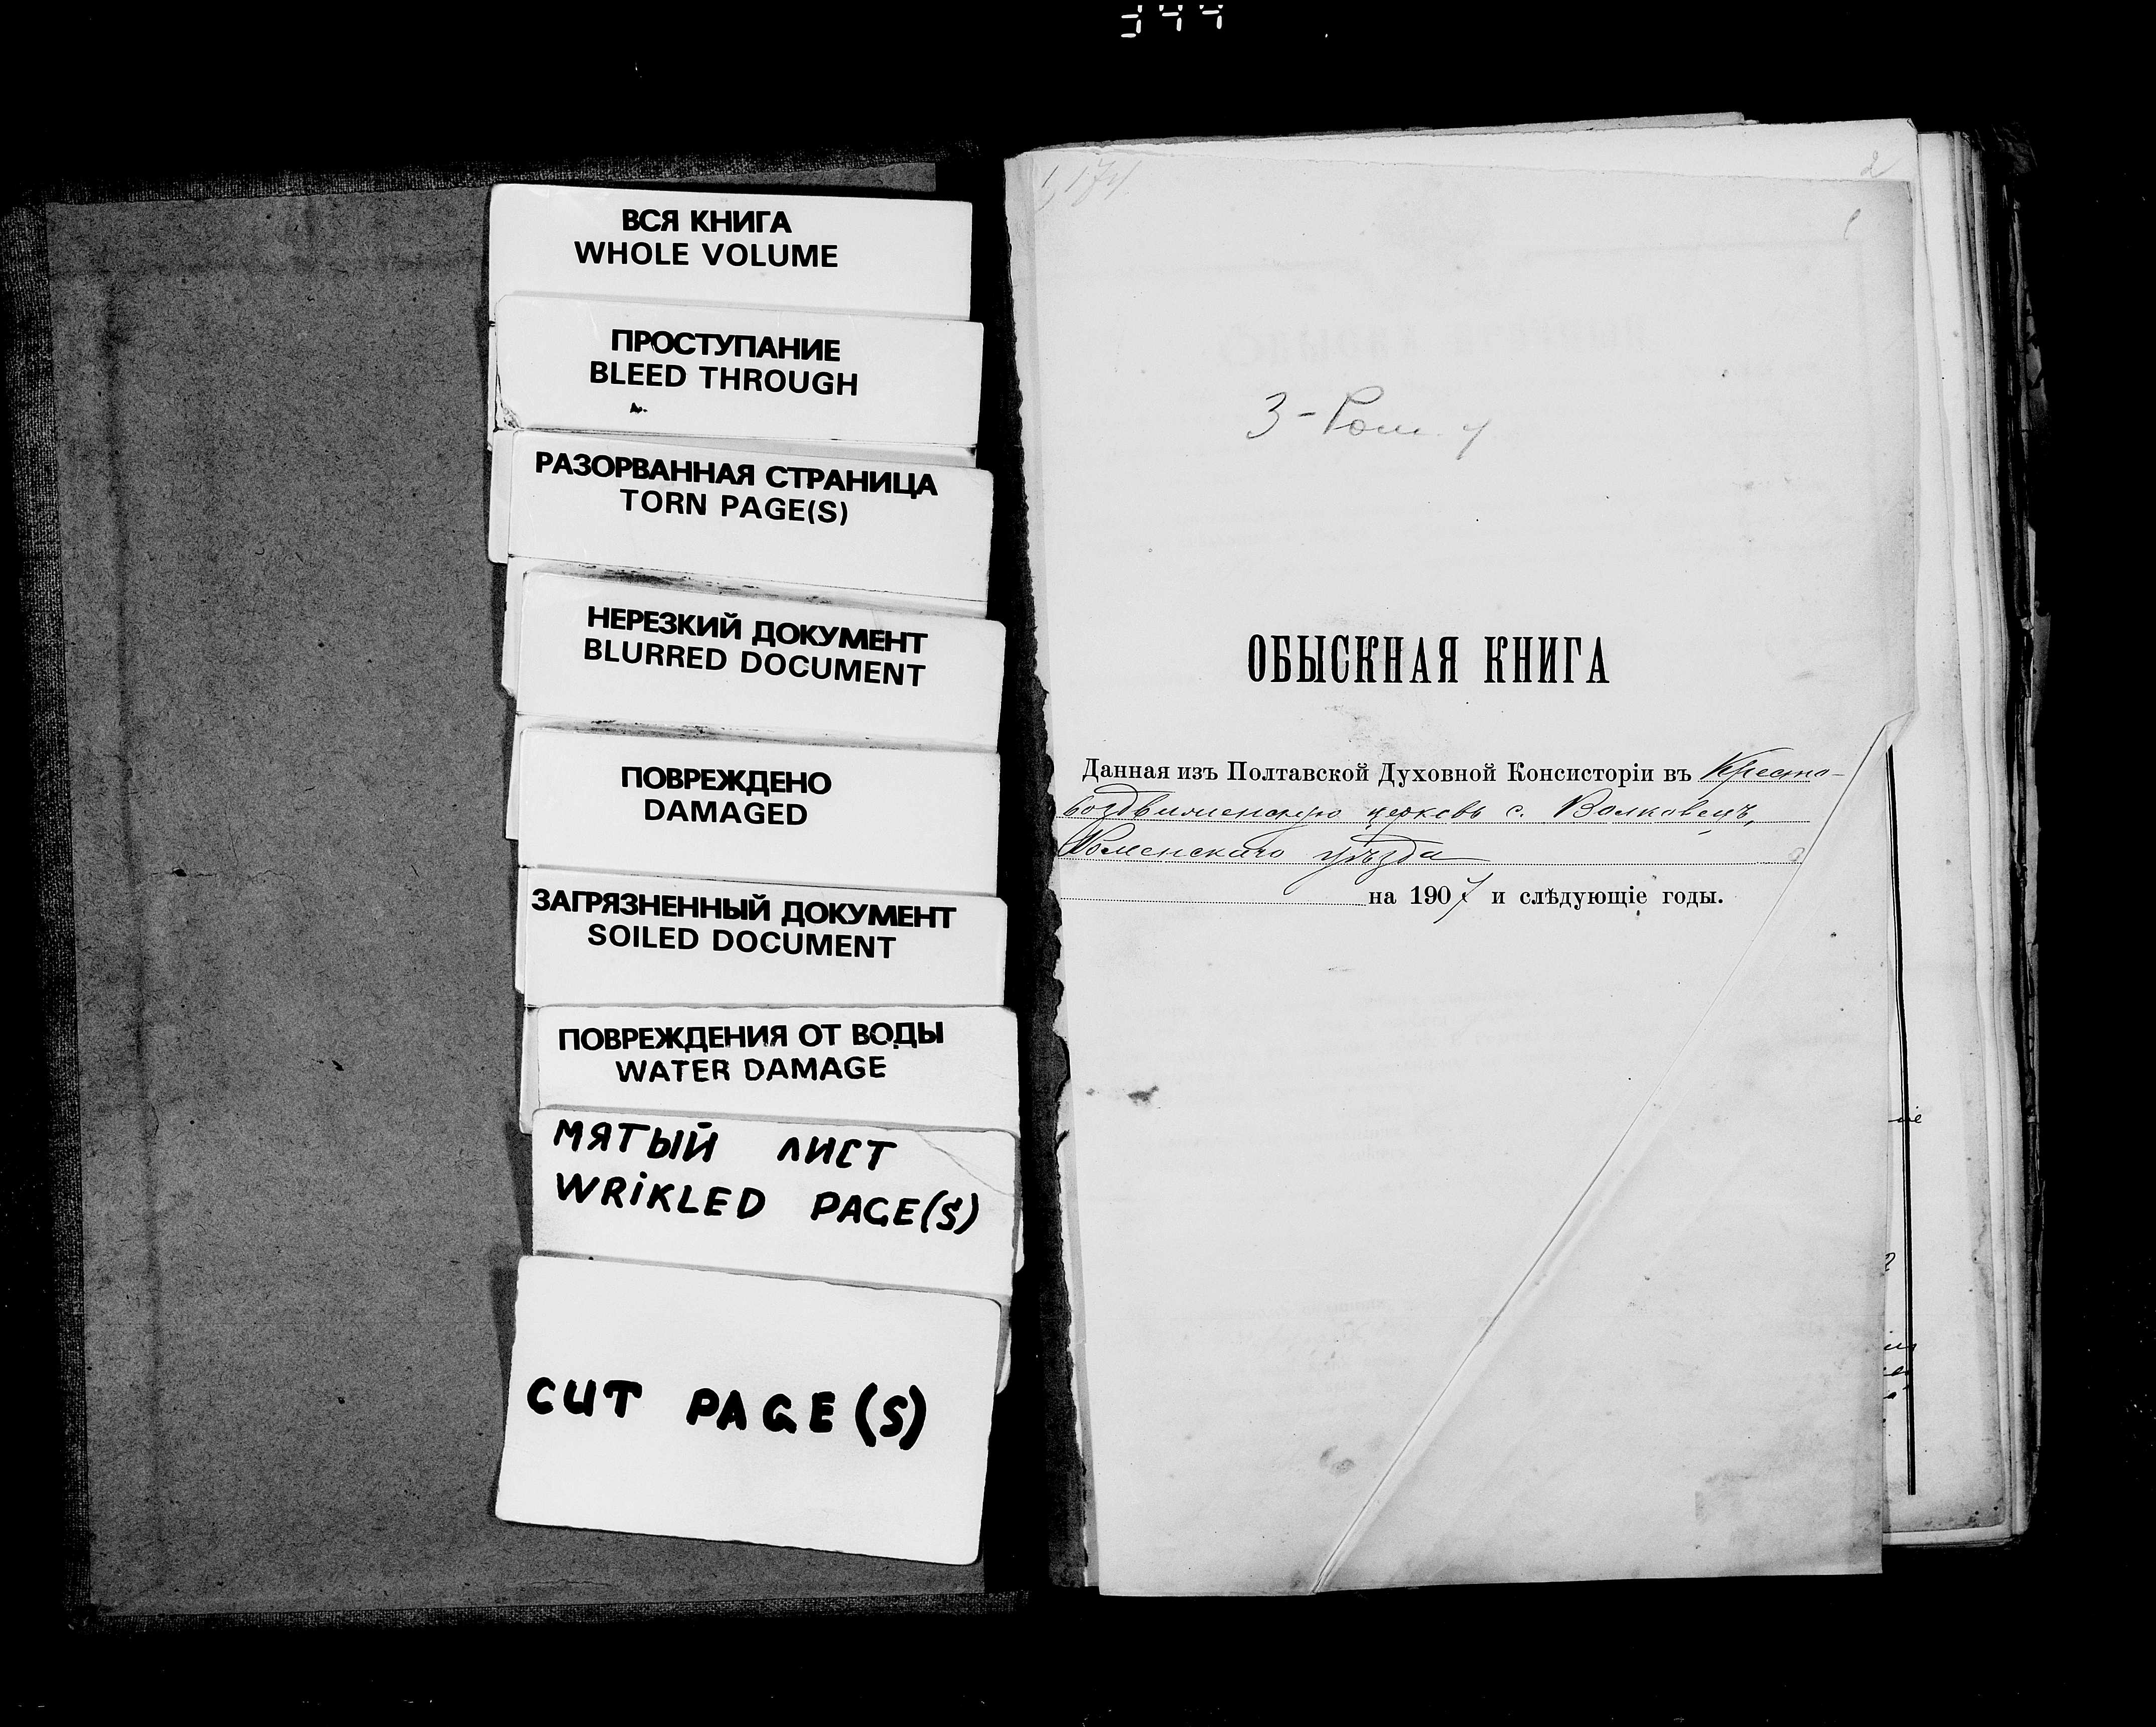 ВСЯ КНИГА
WHOLE VOLUME
ПРОСТУПАНИЕ
BLEED THROUGH
РАЗОРВАННАЯ СТРАНИЦА
TORN PAGE(S)
НЕРЕЗКИЙ ДОКУМЕНТ
BLURRED DOCUMENT
ПОВРЕЖДЕНО
DAMAGED
ЗАГРЯЗНЕННЫЙ ДОКУМЕНТ
SOILED DOCUMENT
ПОВРЕЖДЕНИЯ ОТ ВОДЫ
WATER DAMAGE
МЯТЫЙ ЛИСТ
WRIKLED PAGE(S)
CUT PAGE(S)
2
3-Ром. у
ОБЫСКНАЯ КНИГА
Данная изъ Полтавской Духовной Консисторіи въ Кресто-
воздвиженскую церковь с. Волковецъ,
Роменскаго уѣзда
на 1907 и слѣдующіе годы.